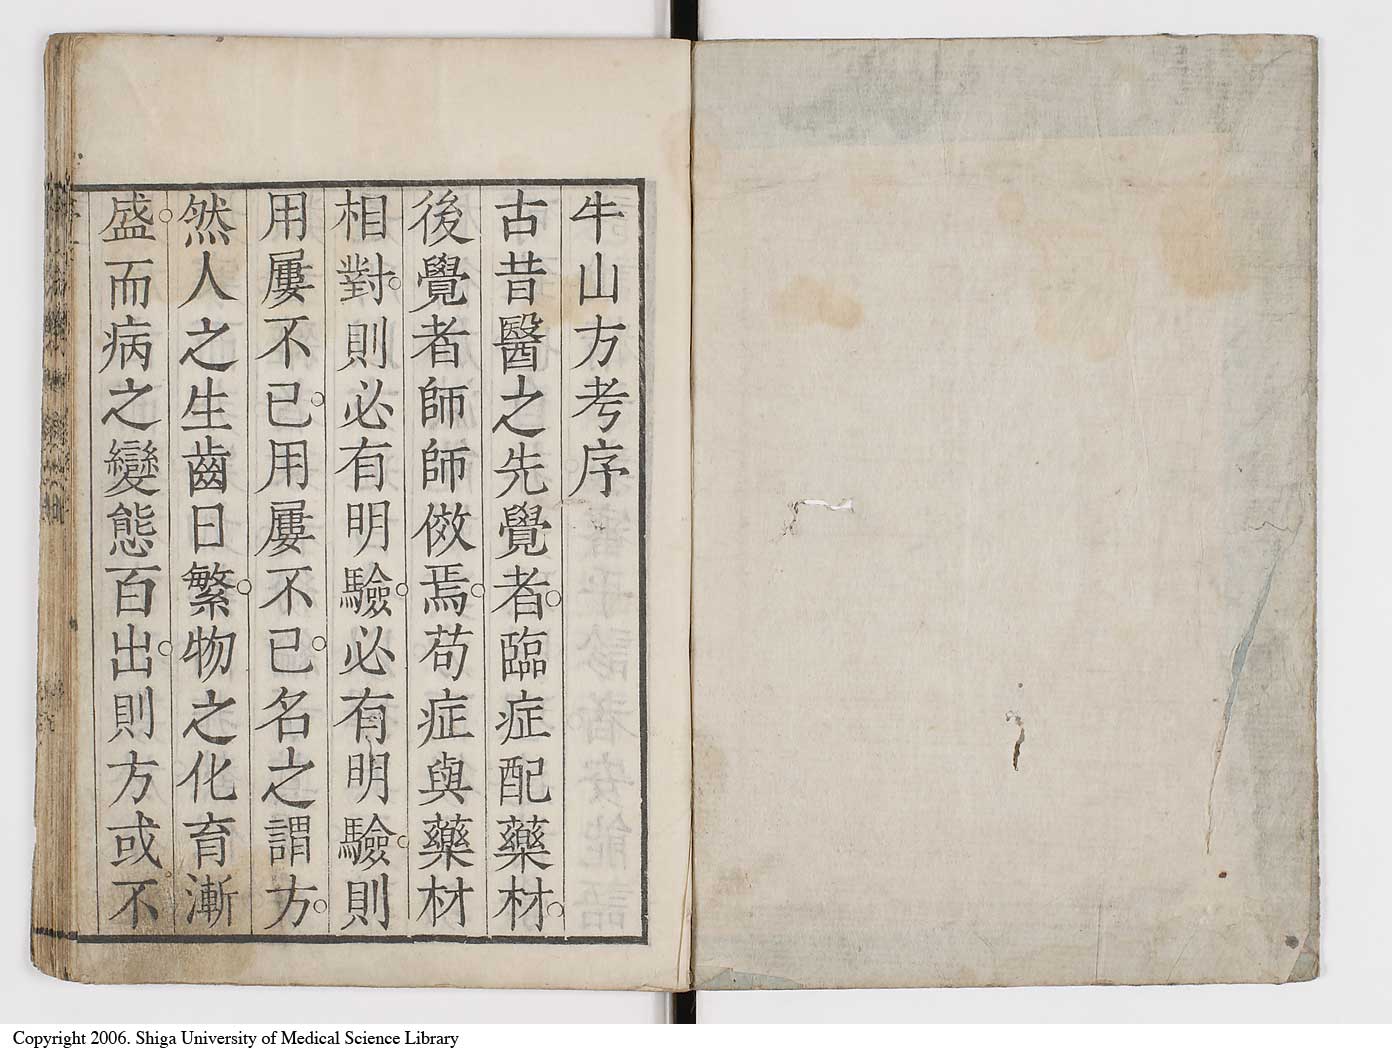 牛山方考序
古昔醫之先覺者。臨症配藥材。
後覺者師師傚焉。苟症與藥材
相對。則必有明驗。必有明驗。則
用屢不已。用屢不已。名之謂方。
然人之生齒日繁。物之化育漸
盛。而病之變態百出。則方或不
Copyright 2006. Shiga University of Medical Science Library